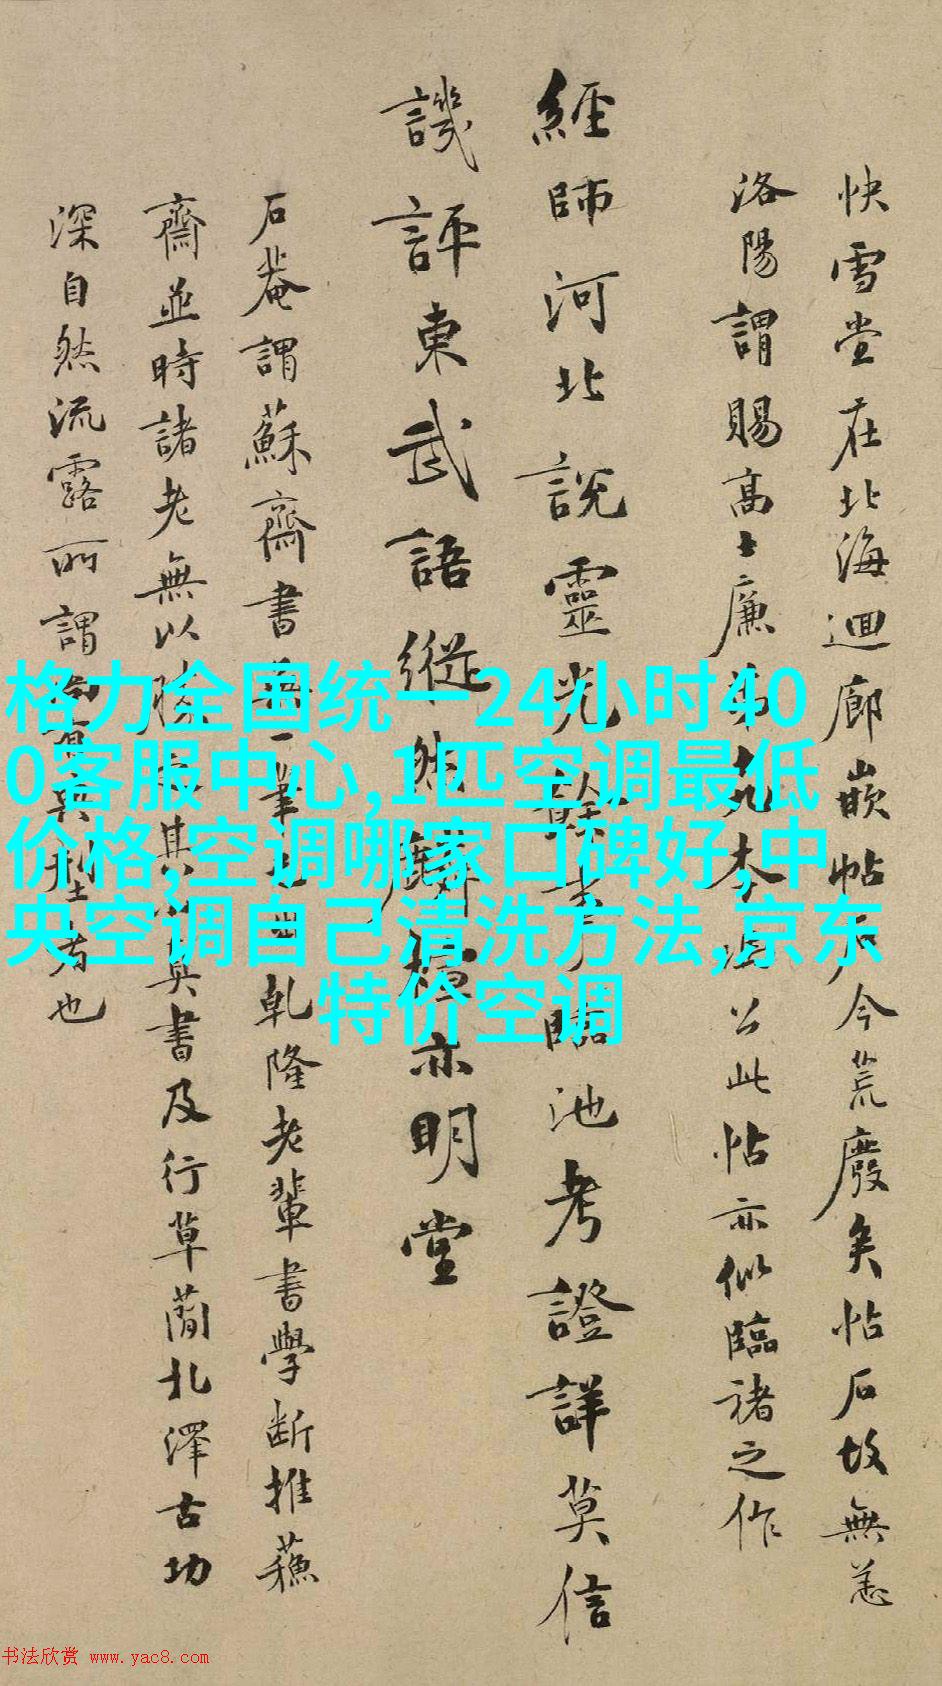 快雪堂在北海迴廊嵌帖石今荒廢矣帖石故無恙
洛陽謂賜高士廉本馮公此帖亦似臨褚之作
經師河北說靈光餘事臨池考證詳莫信
譏評東武語縱然麟楦亦明堂
石菴謂蘇齋書無一筆乾隆老輩書學斷推蘇
齋並時諸老無以勝其真書及行草簡札澤古功
深自然流露所謂典型者也
格力全国统一24小时40
0客服中心,1匹空调最低
价格,空调哪家口碑好,中
央空调自己清洗方法,京东
特价空调
书法欣赏 www.yac8.com